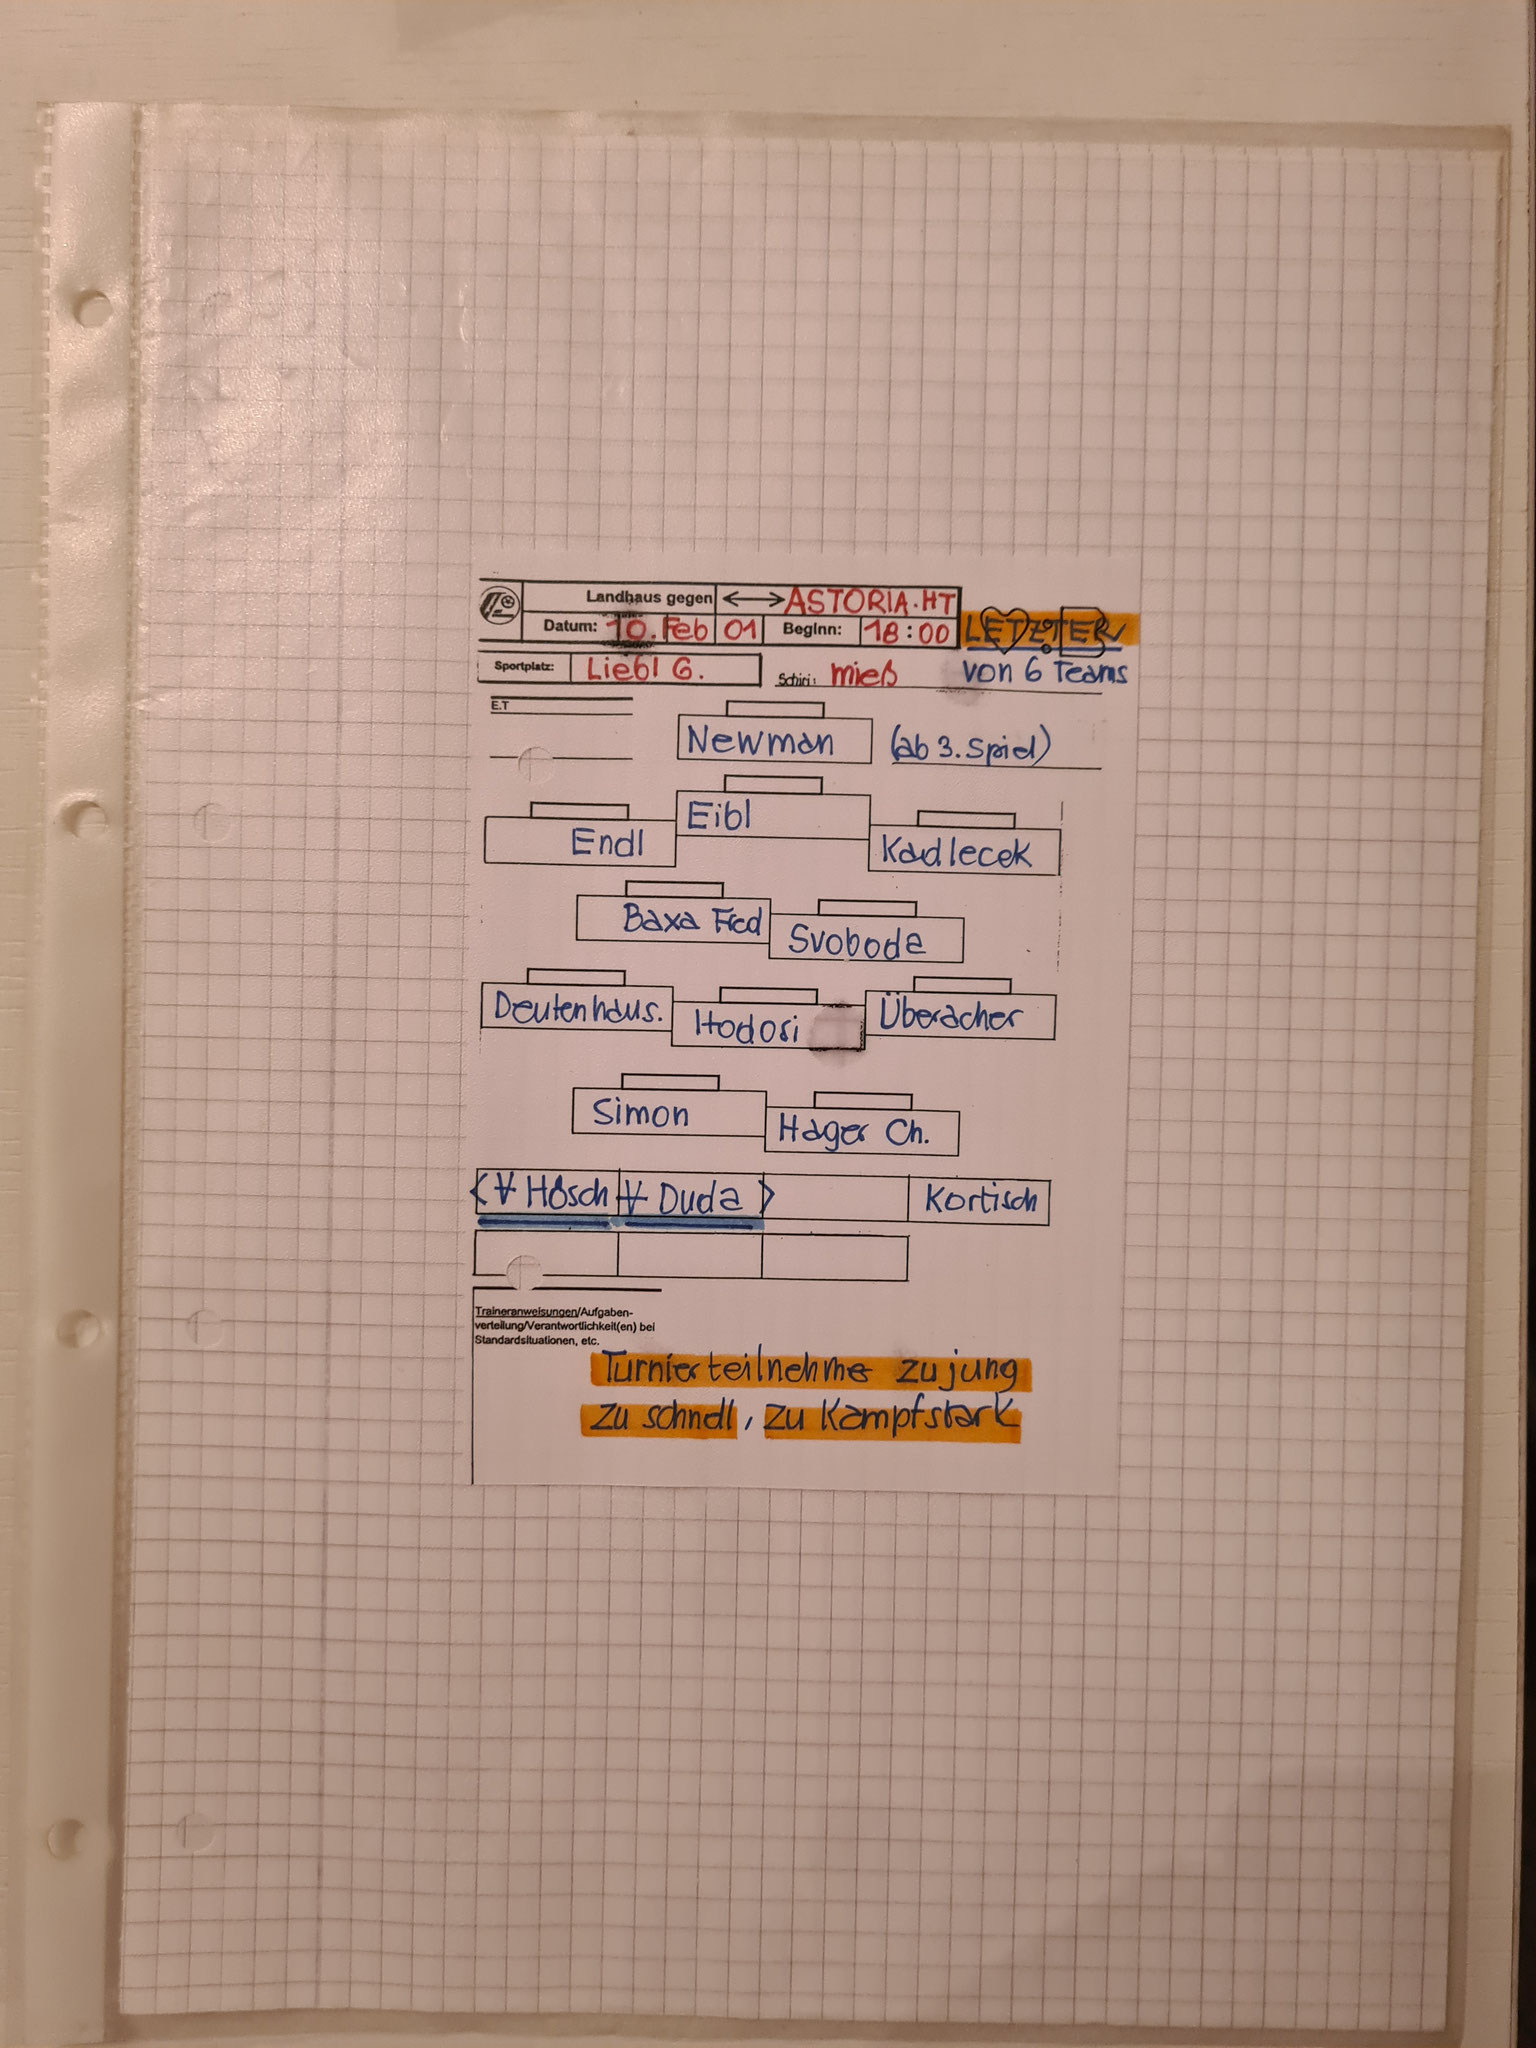 Landhaus gegen ASTORIA·HT
Datum: 10. Feb 01 Beginn: 18:00 LETZTER
Sportplatz: Liebl G. Schiri: mieß von 6 Teams
E.T
Newman (ab 3. Spiel)
Eibl
Endl Kadlecek
Baxa Fred Svoboda
Deutenhaus. Hodosi Überacher
Simon Hager Ch.
Hösch Duda Kortisch
Traineranweisungen/Aufgaben-
verteilung/Verantwortlichkeit(en) bei
Standardsituationen, etc.
Turnierteilnehmer zu jung
zu schnell, zu Kampfstark